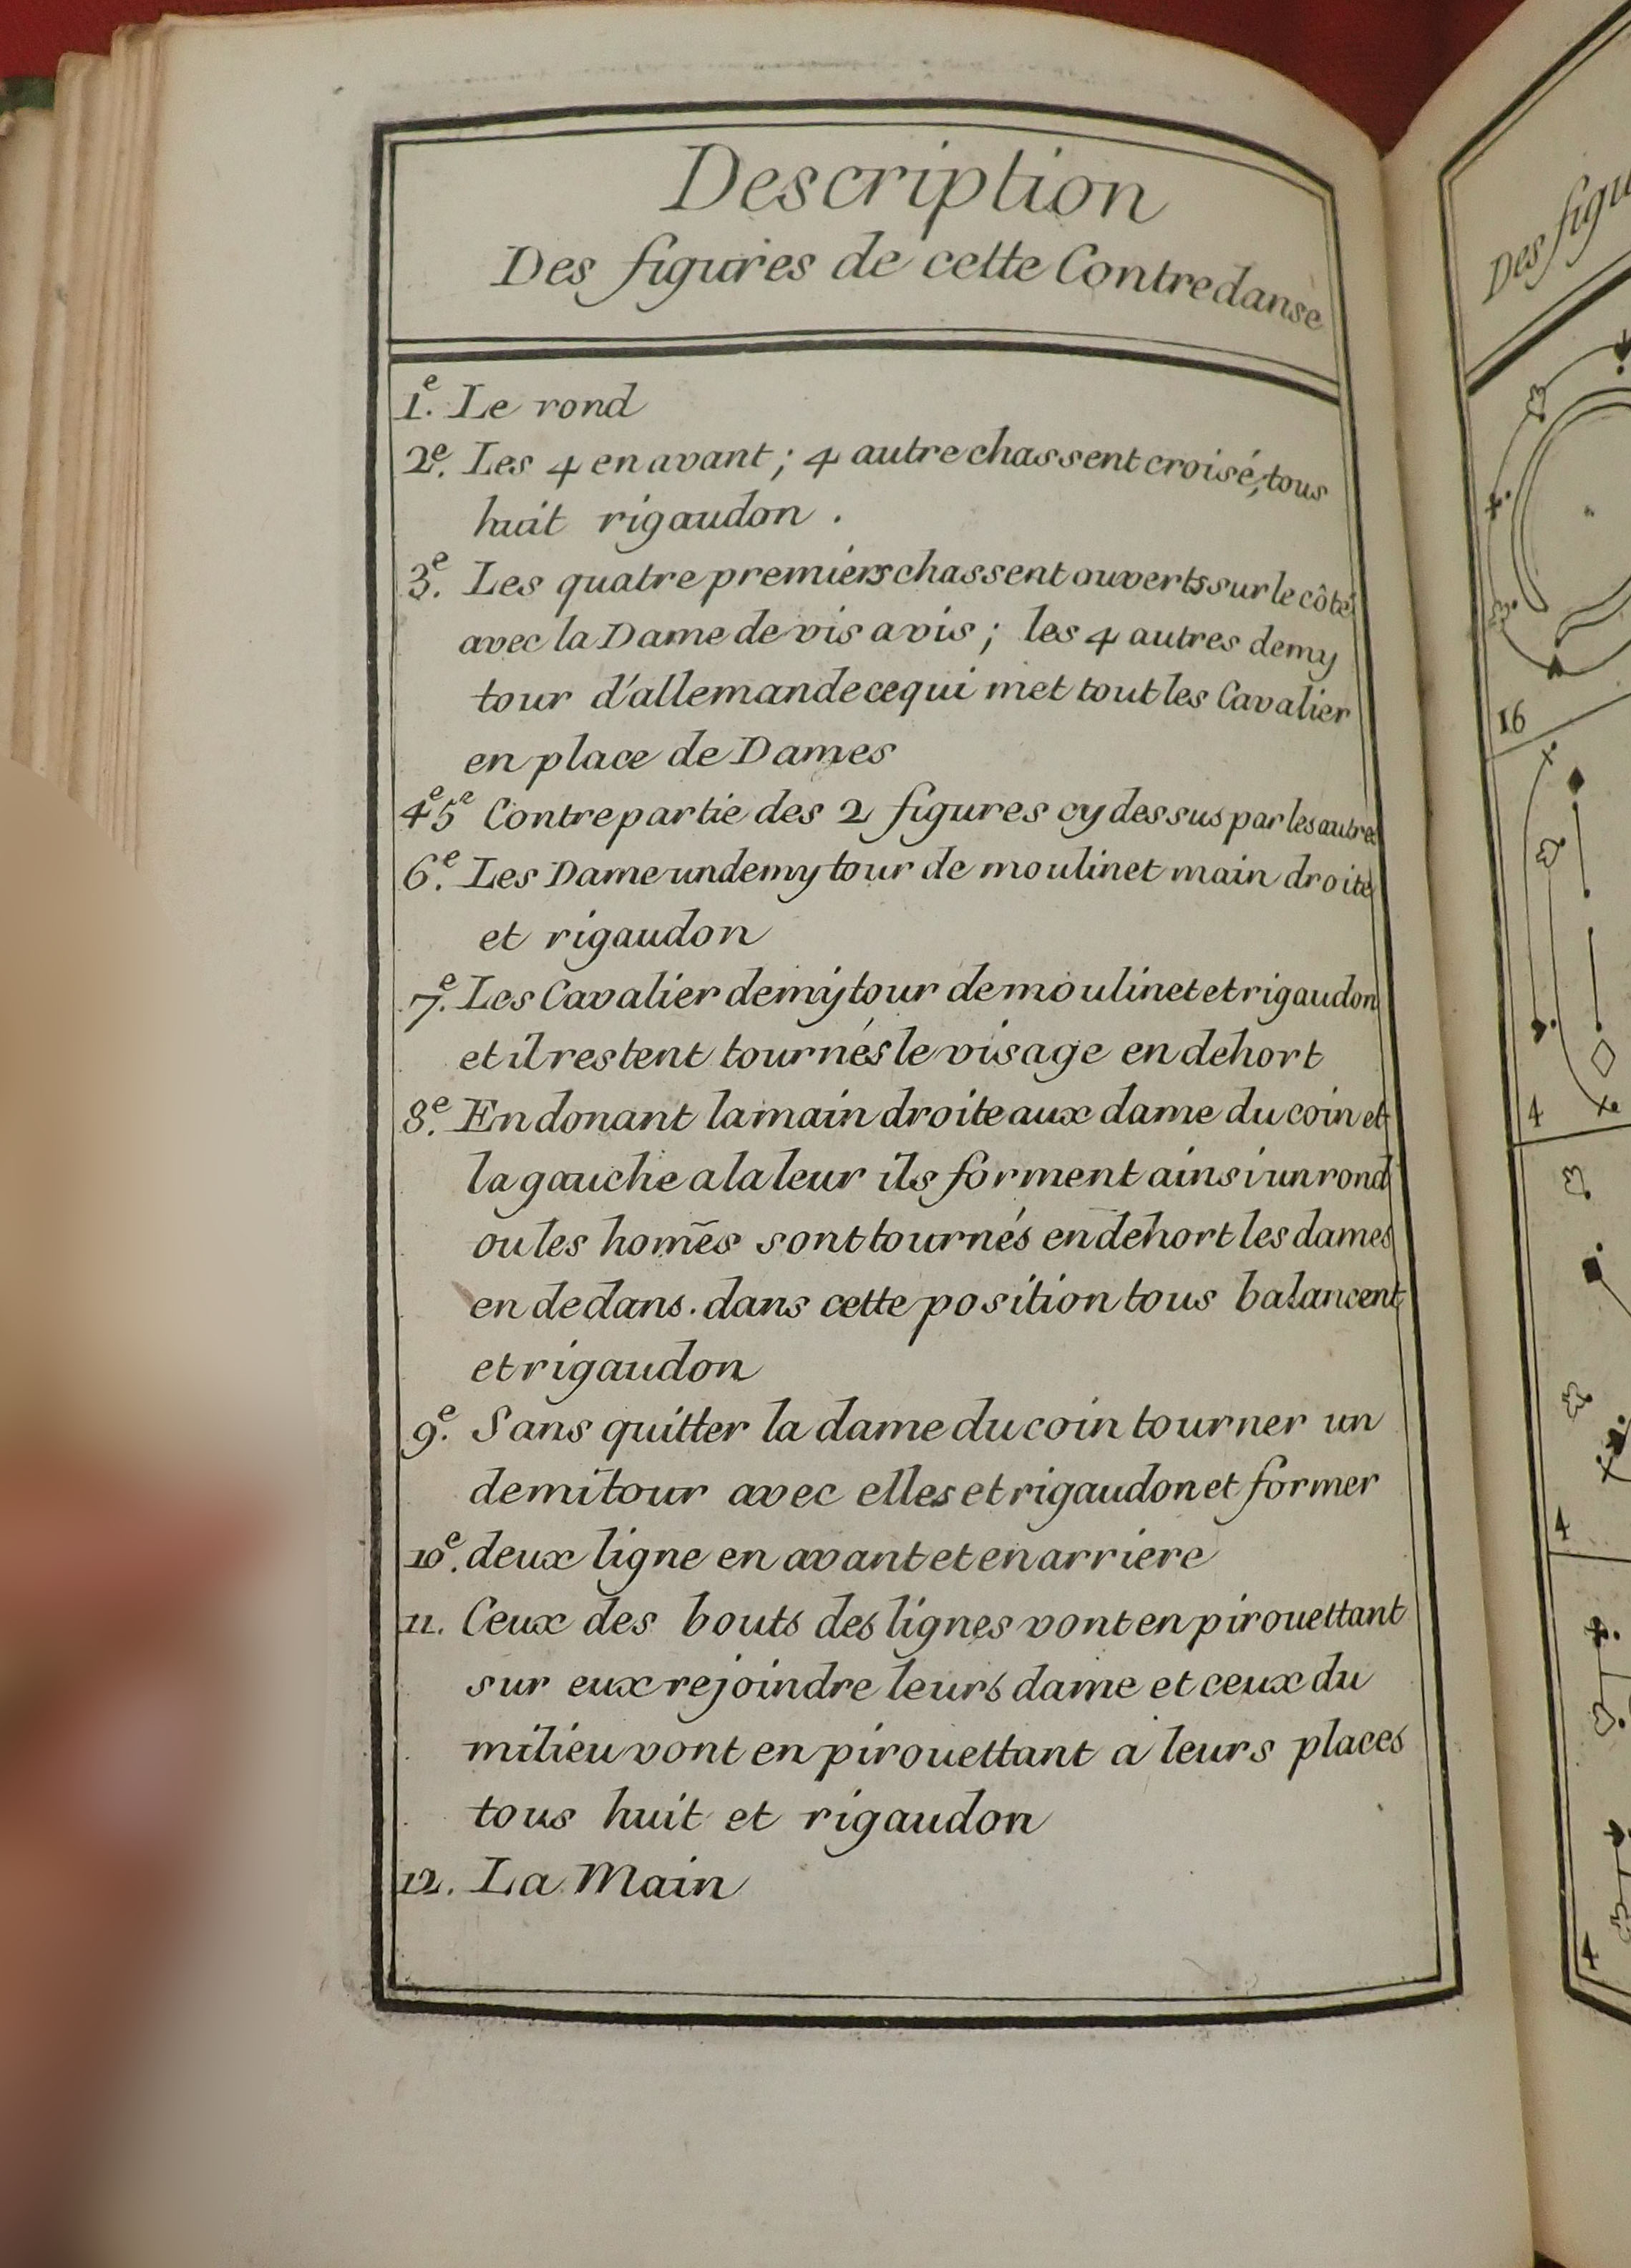 Description
Des figures de cette Contredanse
1.e Le rond
2.e Les 4 en avant ; 4 autre chassent croisé, tous
huit rigaudon .
3.e Les quatre premiers chassent ouverts sur le côté
avec la Dame de vis a vis ; les 4 autres demy
tour d'allemande ce qui met tout les Cavalier
en place de Dames
4e 5e Contre partie des 2 figures cy dessus par les autres
6.e Les Dame un demy tour de moulinet main droite
et rigaudon
7.e Les Cavalier demy tour de moulinet et rigaudon
et il restent tournés le visage en dehort
8.e En donant la main droite aux dame du coin et
la gauche a la leur ils forment ainsi un rond
ou les homẽs sont tournés en dehort les dames
en dedans . dans cette position tous balancent
et rigaudon
9.e Sans quitter la dame du coin tourner un
demi tour avec elles et rigaudon et former
10.e deux ligne en avant et en arriere
11. Ceux des bouts des lignes vont en pirouettant
sur eux rejoindre leurs dame et ceux du
milieu vont en pirouettant a leurs places
tous huit et rigaudon
12. La Main
Des figu
16
4
4
4